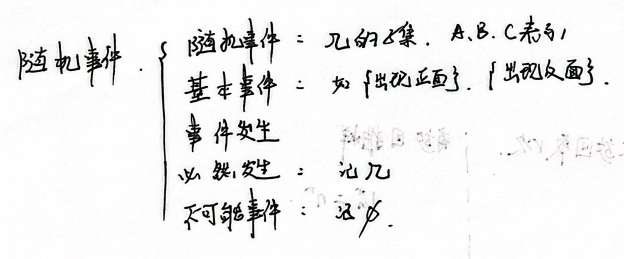 随机事件. { 随机事件: Ω的子集. A、B、C表示
基本事件: 如{出现正面}. {出现反面}.
事件发生
必然发生: 记Ω
不可能事件: 记∅.